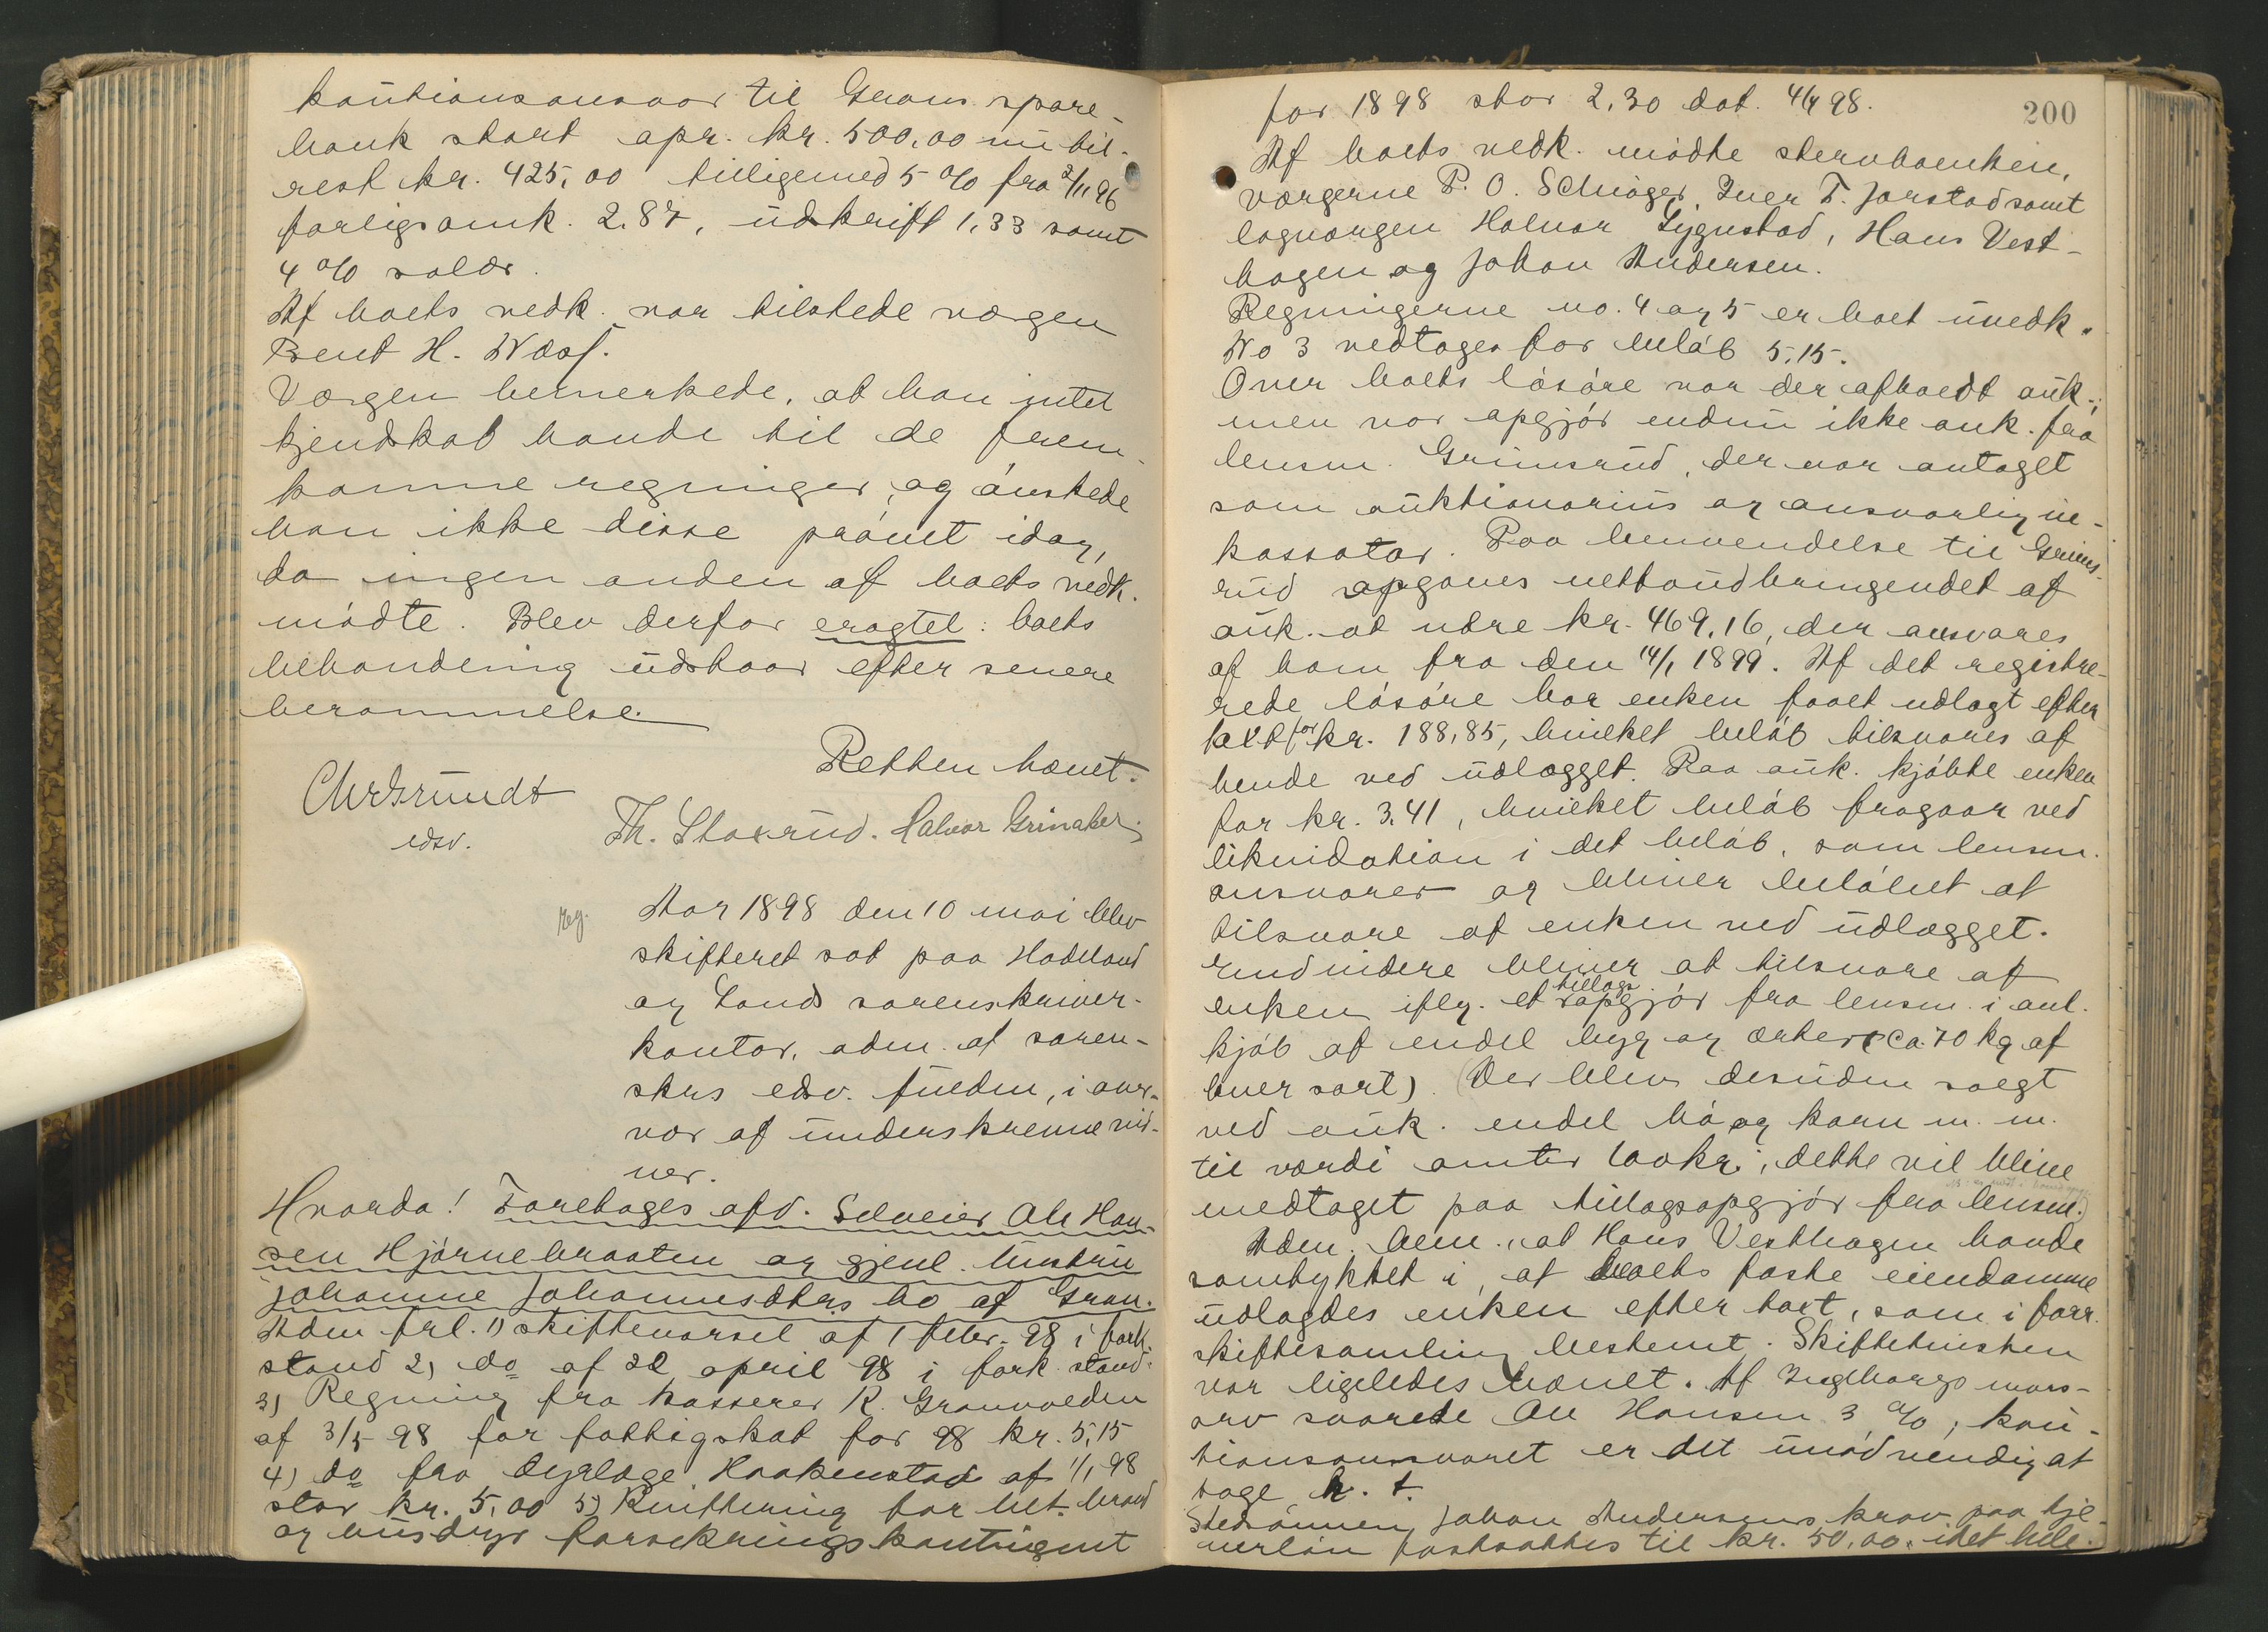 kautionsansvar til Grans spare-
bank stort opr. kr. 500,00 nu til-
rest kr. 425,00 tilligemed 5 % fra 2/11 96
forligsomk. 2.87, udskrift 1,33 samt
4 % salær.
Af boets vedk. var tilstede værgen
Bent H.
Værgen bemerkede, at han intet
kjendskab havde til de frem-
komne regninger, og ønskede
han ikke disse prøvet idag,
da ingen anden af boets vedk.
mødte. Blev derfor eragtet: boets
behandling udstaar efter senere
berammelse.
Retten hævet.
Chr Grundt
edsv.
Th. Staxrud. Halvor Grinaker.
reg.
Aar 1898 den 10 mai blev
skifteret sat paa Hadeland
og Lands sorenskriver-
kontor, adm. af soren-
skrs edsv. fuldm, i over-
vær af underskrevne vid-
ner.
Hvorda! Foretoges afd. Selveier Ole Han-
sen Hjørnebraaten og gjenl. hustru
Johanne Johannesdtrs bo af Gran.
Adm frl. 1) skiftevarsel af 1 febr. 98 i fork.
stand 2) do af 22 april 98 i fork. stand.
3) Regning fra kasserer K. Granvolden
af 3/5 98 for fattigskat for 98 kr. 5,15
4) do fra dyrlæge Haakenstad af 1/1 98
stor kr. 5,00 5) Kvittering for bet. brand
og husdyr forsikringskontingent
200
for 1898 stor 2,30 dat. 4/4 98.
Af boets vedk. mødte stervboenken,
værgerne P. O. Schiager, Iver T. Jorstad samt
lagværgen Halvor Lygnstad, Hans Vest-
hagen og Johan Andersen.
Regningerne no. 4 og 5 er boet uvedk.
No 3 vedtages for beløb 5,15.
Over boets løsøre var der afholdt auk.;
men var opgjør endnu ikke ank. fra
lensm. Grimsrud, der var antaget
som auktionarius og ansvarlig in-
kassator. Paa henvendelse til Grims-
rud opgaves nettoudbringendet af
auk. at være kr. 469,16, der ansvares
af ham fra den 14/1 1899. Af det registre-
rede løsøre har enken faaet udlagt efter
taxt for kr. 188,85, hvilket beløb tilsvares af
hende ved udlægget. Paa auk. kjøbte enken
for kr. 3,41, hvilket beløb fragaar ved
likvidation i det beløb, som lensm.
ansvarer og bliver beløbet at
tilsvare af enken ved udlægget.
Endvidere bliver at tilsvare af
enken iflg. et tillægs opgjør fra lensm. i anl.
kjøb af endel byg og erter (ca. 70 kg af
hver sort). (Der blev desuden solgt
ved auk. endel hø og korn m. m.
til værdi omtr 100 kr; dette vil blive
medtaget paa tillægsopgjør fra lensm.)
Adm. bem. at Hans Vesthagen havde
samtykket i, at boets faste eiendomme
udlagdes enken efter taxt, som i forr.
skiftesamling bestemt. Skiftetvisten
var ligeledes hævet. Af Ingeborgs mors-
arv svarede Ole Hansen 3 %; kau-
tionsansvaret er det unødvendig at
tage h. t.
Stedsønnen Johan Andersens krav paa tje-
nerløn fastsattes til kr. 50,00 i det hele.